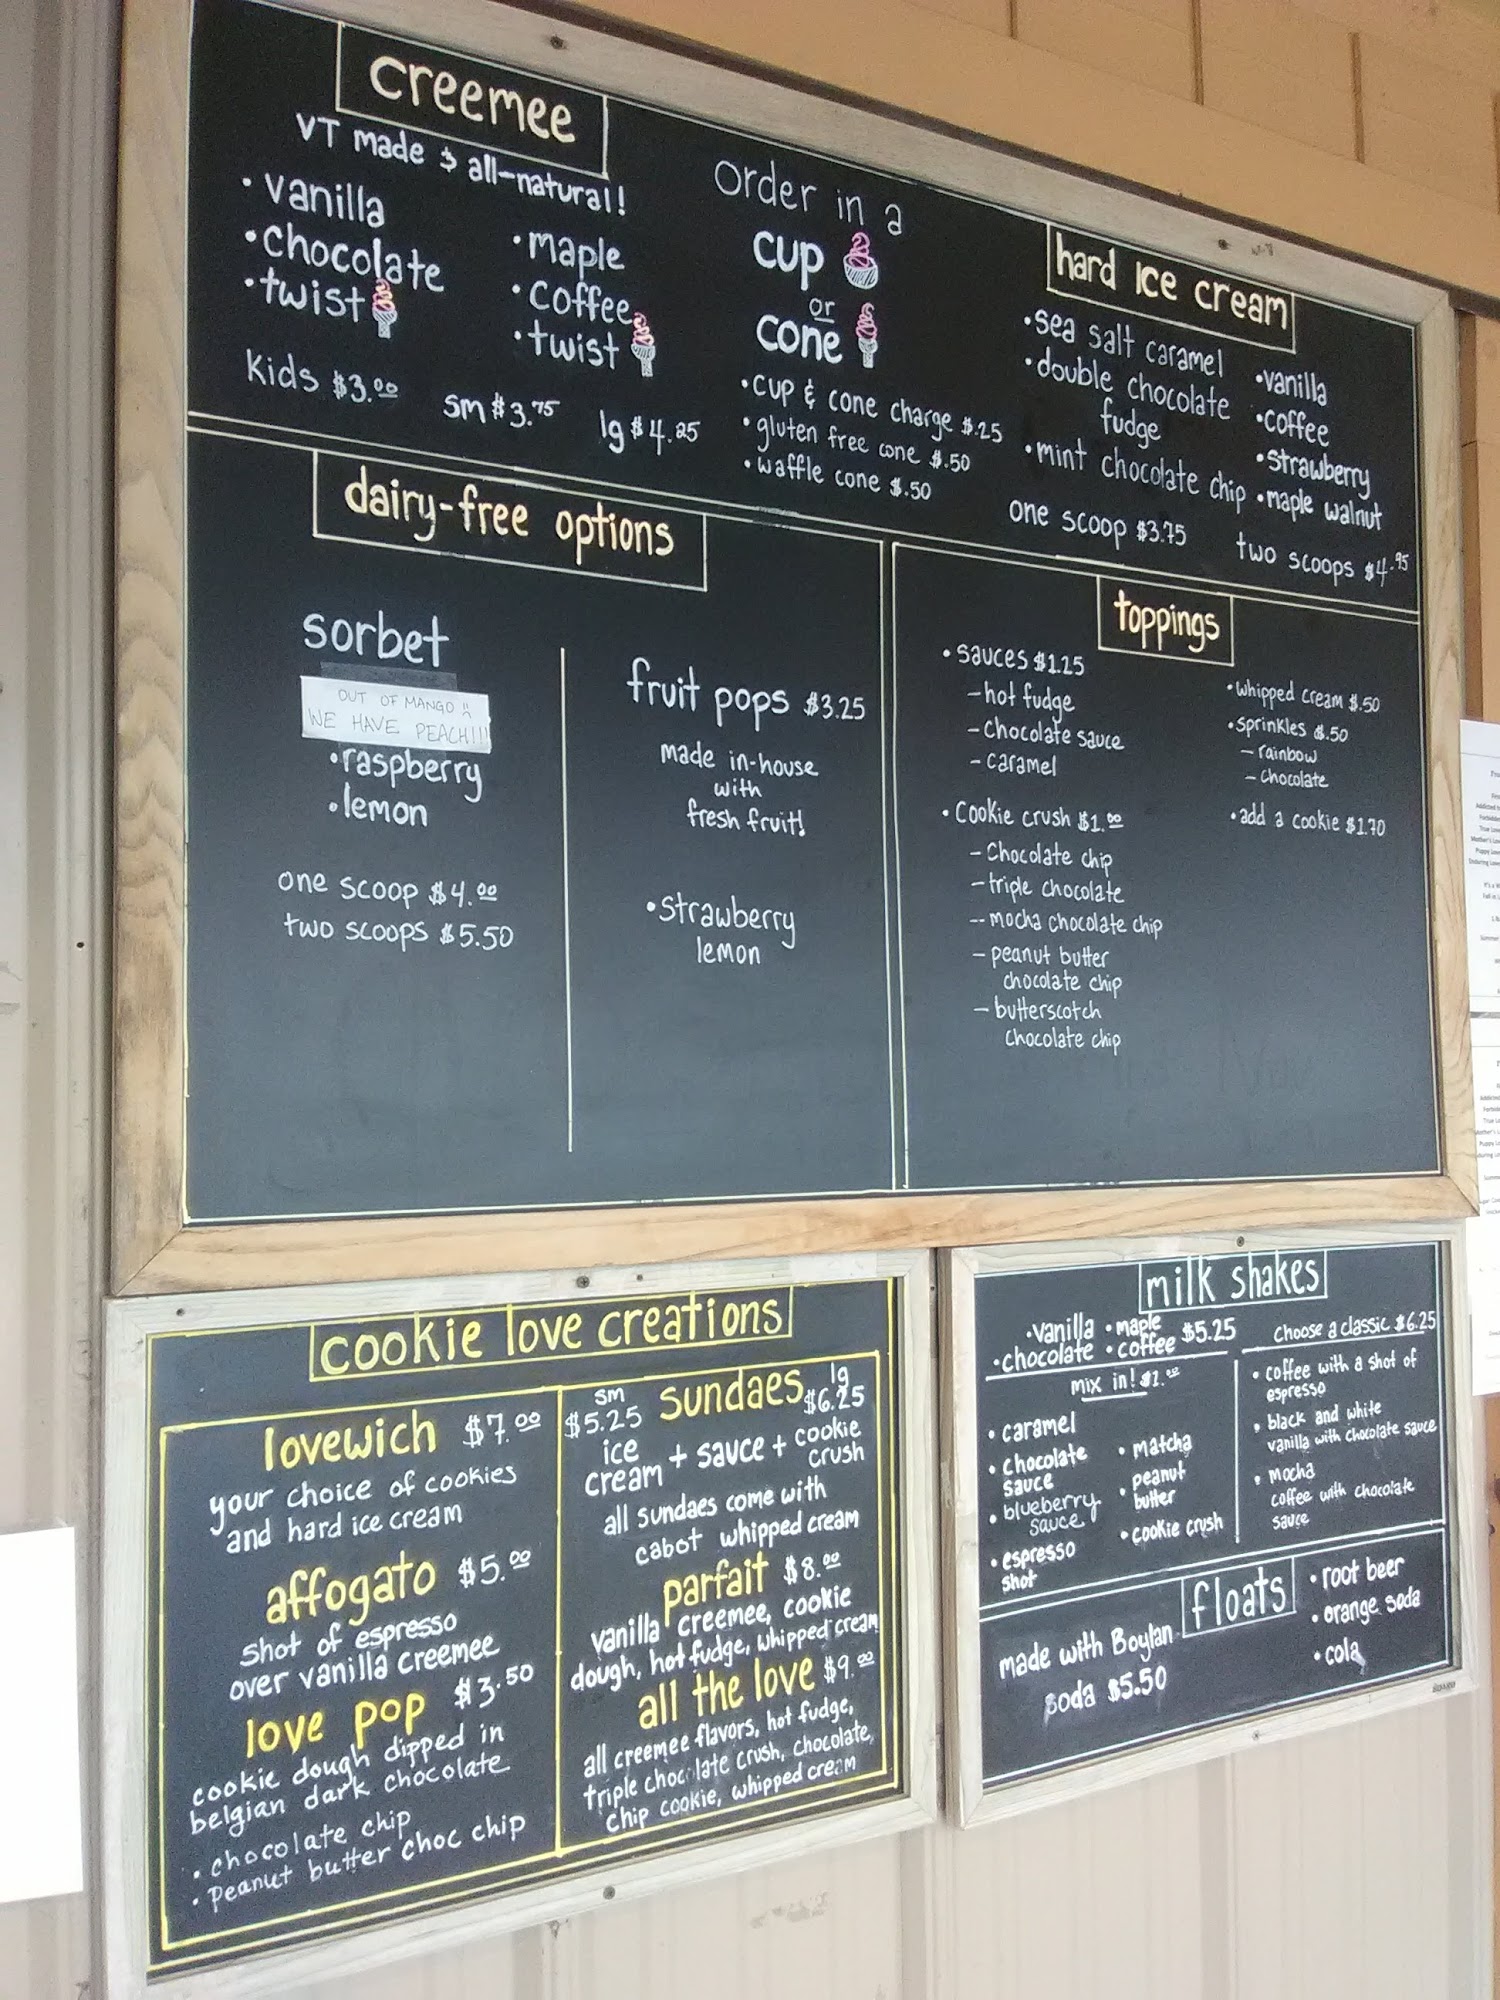 creemee
VT made & all-natural!
• vanilla
• chocolate
• twist
• maple
• coffee
• twist
kids $3.00
sm $3.75
lg $4.25
order in a
cup
or
cone
• cup & cone charge $.25
• gluten free cone $.50
• waffle cone $.50
hard ice cream
• sea salt caramel
• double chocolate
fudge
• mint chocolate chip
• vanilla
• coffee
• strawberry
• maple walnut
one scoop $3.75
two scoops $4.95
dairy-free options
sorbet
OUT OF MANGO
WE HAVE PEACH!!!
• raspberry
• lemon
one scoop $4.00
two scoops $5.50
fruit pops $3.25
made in-house
with
fresh fruit!
• strawberry
lemon
toppings
• sauces $1.25
- hot fudge
- chocolate sauce
- caramel
• cookie crush $1.00
- chocolate chip
- triple chocolate
-- mocha chocolate chip
- peanut butter
chocolate chip
- butterscotch
chocolate chip
• whipped cream $.50
• sprinkles $.50
- rainbow
- chocolate
• add a cookie $1.70
cookie love creations
lovewich $7.00
your choice of cookies
and hard ice cream
affogato $5.00
shot of espresso
over vanilla creemee
love pop $3.50
cookie dough dipped in
belgian dark chocolate
• chocolate chip
• peanut butter choc chip
sm
$5.25
sundaes
lg
$6.25
ice
cream + sauce + cookie
crush
all sundaes come with
cabot whipped cream
parfait $8.00
vanilla creemee, cookie
dough, hot fudge, whipped cream
all the love $9.00
all creemee flavors, hot fudge,
triple chocolate crush, chocolate,
chip cookie, whipped cream
milk shakes
• vanilla • maple
• chocolate • coffee $5.25
mix in! $1.00
• caramel
• chocolate
sauce
• blueberry
sauce
• espresso
shot
• matcha
• peanut
butter
• cookie crush
choose a classic $6.25
• coffee with a shot of
espresso
• black and white
vanilla with chocolate sauce
• mocha
coffee with chocolate
sauce
floats
made with Boylan
soda $5.50
• root beer
• orange soda
• cola